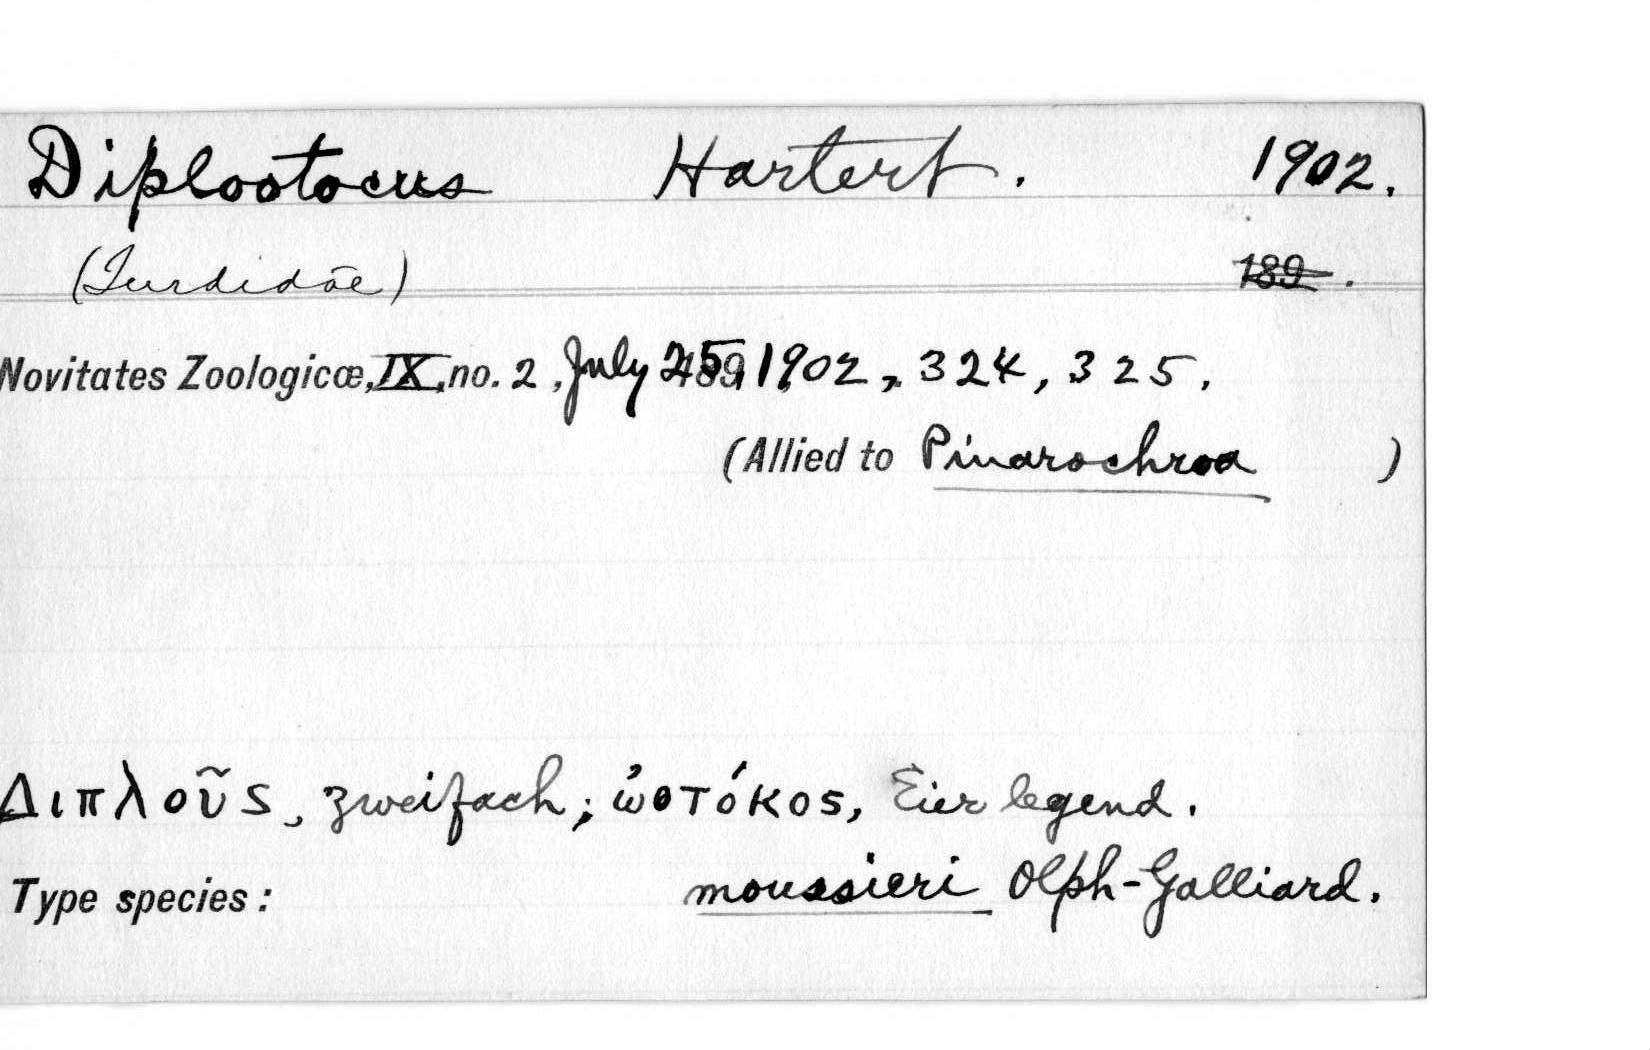 Diplootocus Hartert. 1902.
(Turdidae) 189.
Novitates Zoologicæ, IX, no. 2, July 25, 1902, 324, 325.
(Allied to Pinarochroa )
Διπλοῦς, zweifach; ὠοτόκος, Eier legend.
Type species: moussieri Olph-Galliard.